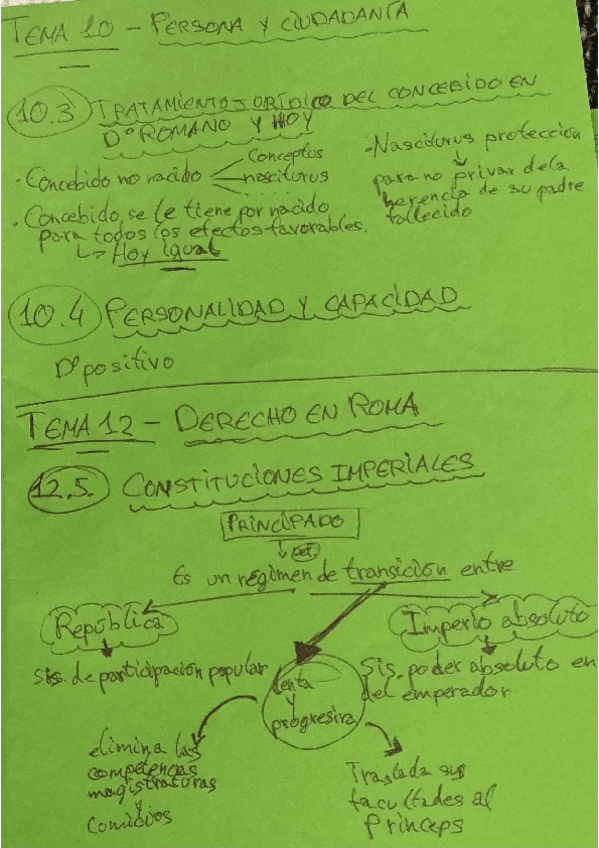 TEMA 10 - PERSONA Y CIUDADANÍA
10.3 TRATAMIENTO JURÍDICO DEL CONCEBIDO EN
Dº ROMANO Y HOY
- Concebido no nacido
Conceptus
nasciturus
- Concebido, se le tiene por nacido
para todos los efectos favorables.
↳ Hoy igual
- Nasciturus protección
para no privar de la
herencia de su padre
fallecido
10.4 PERSONALIDAD Y CAPACIDAD
Dº positivo
TEMA 12 - DERECHO EN ROMA
12.5. CONSTITUCIONES IMPERIALES
PRINCIPADO
↓ def.
Es un régimen de transición entre
República
Imperio absoluto
sis. de participación popular
Sis. poder absoluto en
del emperador
lenta
y
progresiva
elimina las
competencias
magistraturas
y
Comicios
Traslada sus
facultades al
Princeps